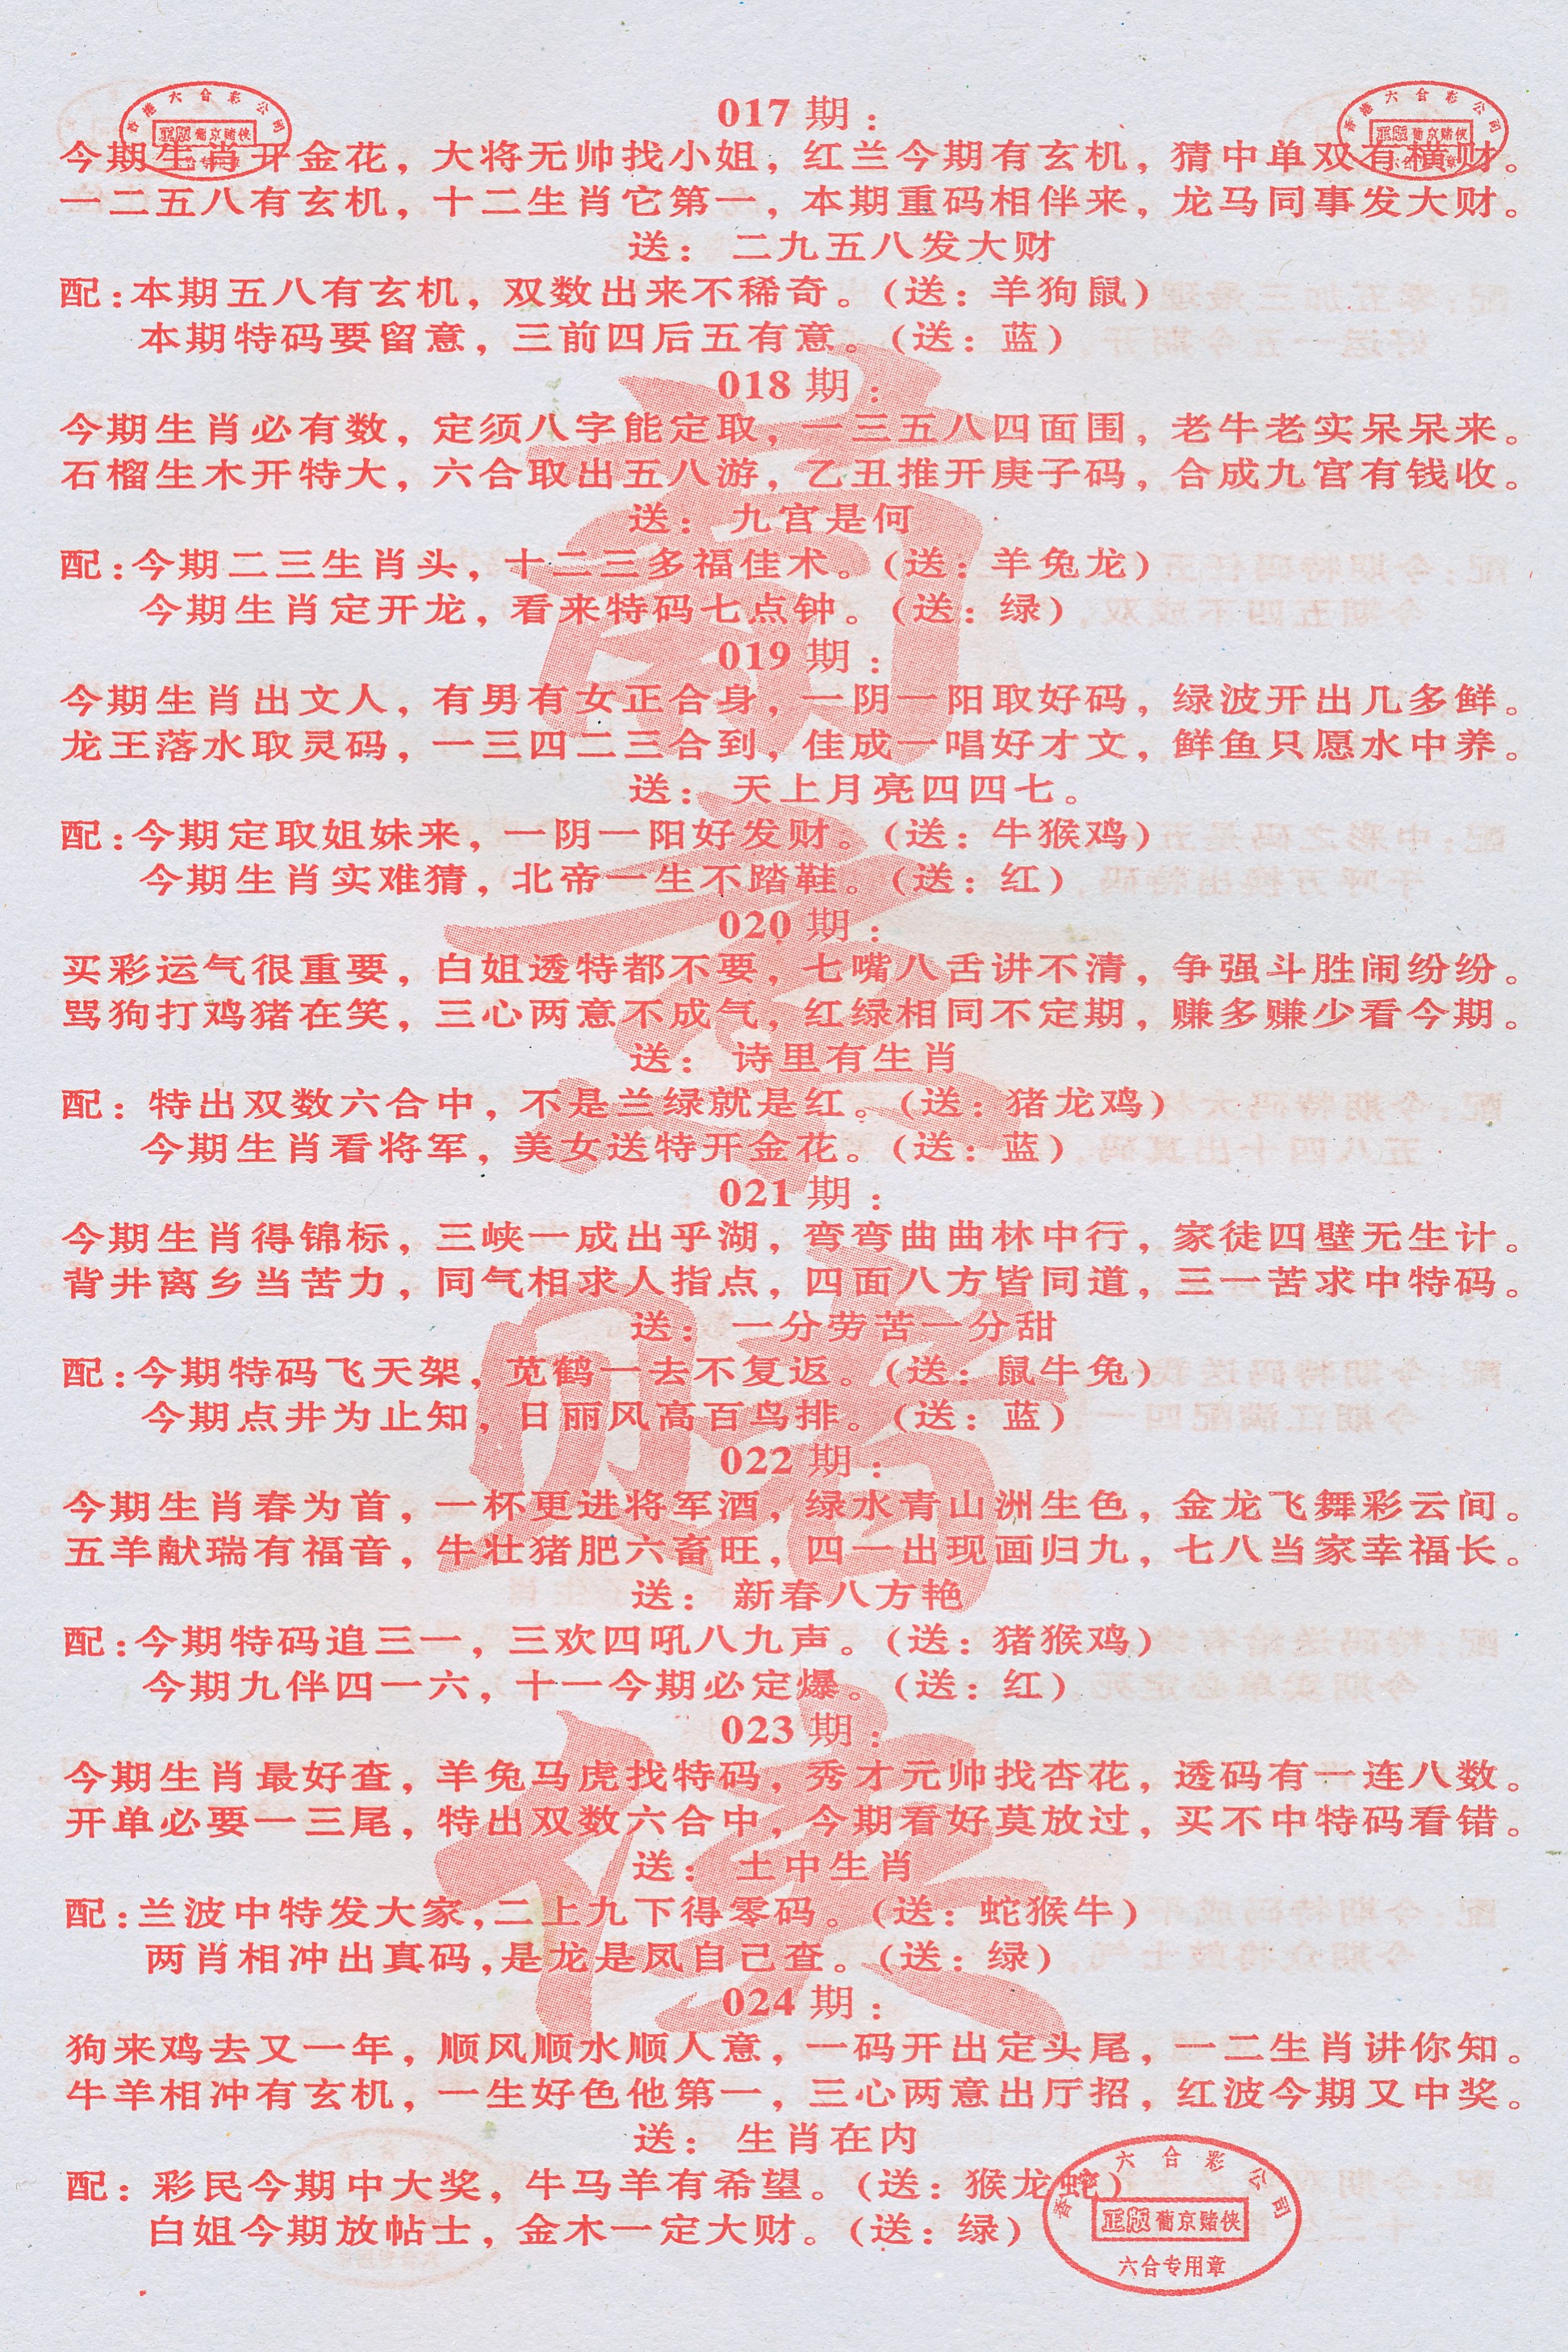 017期：
今期生肖开金花，大将无帅找小姐，红兰今期有玄机，猜中单双有横财。
一二五八有玄机，十二生肖它第一，本期重码相伴来，龙马同事发大财。
送：二九五八发大财
配：本期五八有玄机，双数出来不稀奇。（送：羊狗鼠）
本期特码要留意，三前四后五有意。（送：蓝）
018期：
今期生肖必有数，定须八字能定取，一三五八四面围，老牛老实呆呆来。
石榴生木开特大，六合取出五八游，乙丑推开庚子码，合成九宫有钱收。
送：九宫是何
配：今期二三生肖头，十二三多福佳术。（送：羊兔龙）
今期生肖定开龙，看来特码七点钟。（送：绿）
019期：
今期生肖出文人，有男有女正合身，一阴一阳取好码，绿波开出几多鲜。
龙王落水取灵码，一三四二三合到，佳成一唱好才文，鲜鱼只愿水中养。
送：天上月亮四四七。
配：今期定取姐妹来，一阴一阳好发财。（送：牛猴鸡）
今期生肖实难猜，北帝一生不踏鞋。（送：红）
020期：
买彩运气很重要，白姐透特都不要，七嘴八舌讲不清，争强斗胜闹纷纷。
骂狗打鸡猪在笑，三心两意不成气，红绿相同不定期，赚多赚少看今期。
送：诗里有生肖
配：特出双数六合中，不是兰绿就是红。（送：猪龙鸡）
今期生肖看将军，美女送特开金花。（送：蓝）
021期：
今期生肖得锦标，三峡一成出乎湖，弯弯曲曲林中行，家徒四壁无生计。
背井离乡当苦力，同气相求人指点，四面八方皆同道，三一苦求中特码。
送：一分劳苦一分甜
配：今期特码飞天架，苋鹤一去不复返。（送：鼠牛兔）
今期点井为止知，日丽风高百鸟排。（送：蓝）
022期：
今期生肖春为首，一杯更进将军酒，绿水青山洲生色，金龙飞舞彩云间。
五羊献瑞有福音，牛壮猪肥六畜旺，四一出现画归九，七八当家幸福长。
送：新春八方艳
配：今期特码追三一，三欢四吼八九声。（送：猪猴鸡）
今期九伴四一六，十一今期必定爆。（送：红）
023期：
今期生肖最好查，羊兔马虎找特码，秀才元帅找杏花，透码有一连八数。
开单必要一三尾，特出双数六合中，今期看好莫放过，买不中特码看错。
送：土中生肖
配：兰波中特发大家，二上九下得零码。（送：蛇猴牛）
两肖相冲出真码，是龙是凤自己查。（送：绿）
024期：
狗来鸡去又一年，顺风顺水顺人意，一码开出定头尾，一二生肖讲你知。
牛羊相冲有玄机，一生好色他第一，三心两意出厅招，红波今期又中奖。
送：生肖在内
配：彩民今期中大奖，牛马羊有希望。（送：猴龙蛇）
白姐今期放帖士，金木一定大财。（送：绿）
葡京赌侠
香港六合彩公司
正版葡京赌侠
六合专用章
香港六合彩公司
正版葡京赌侠
六合专用章
香港六合彩公司
正版葡京赌侠
六合专用章